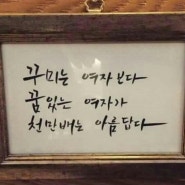 꾸미는 여자보다
꿈있는 여자가
천만배는 아름답다